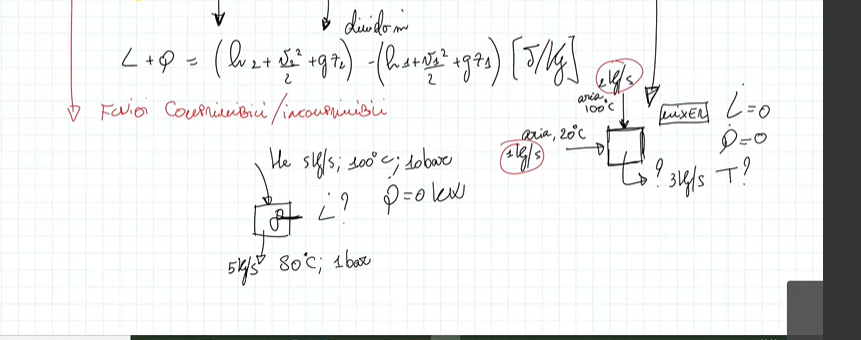 divido ṁ
L + Q = (h2 + v2²/2 + gz2) - (h1 + v1²/2 + gz1) [J/kg]
Fluidi Comprimibili/incomprimibili
He 5kg/s; 100°C; 10bar
L̇? Q̇=0 kW
5kg/s 80°C; 1bar
2kg/s
aria, 100°C
MIXER L̇=0
Q̇=0
aria, 20°C
1kg/s
? 3kg/s T?